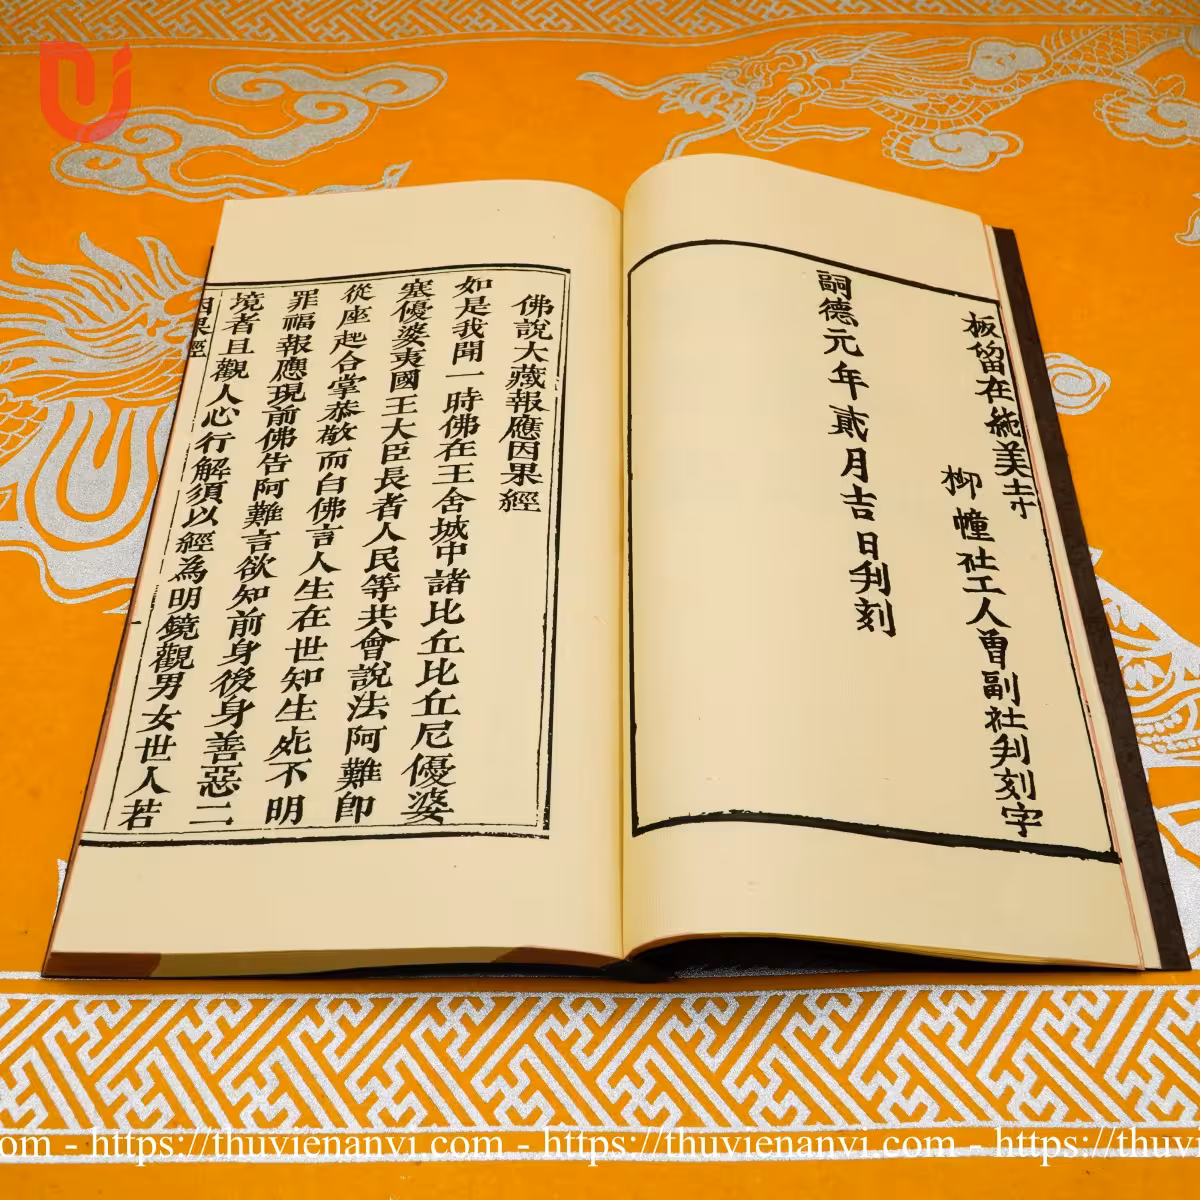 板留在美寺
柳幢社工人曾副社刋刻字
嗣德元年貳月吉日刋刻
佛說大藏報應因果經
如是我聞一時佛在王舍城中諸比丘比丘尼優婆
塞優婆夷國王大臣長者人民等共會說法阿難即
從座起合掌恭敬而白佛言人生在世知生死不明
罪福報應現前佛告阿難言欲知前身後身善惡二
境者且觀人心行解須以經為明鏡觀男女世人若
因果經
om - https://thuvienanvi.com - https://thuvienanvi.com - https://thuvi